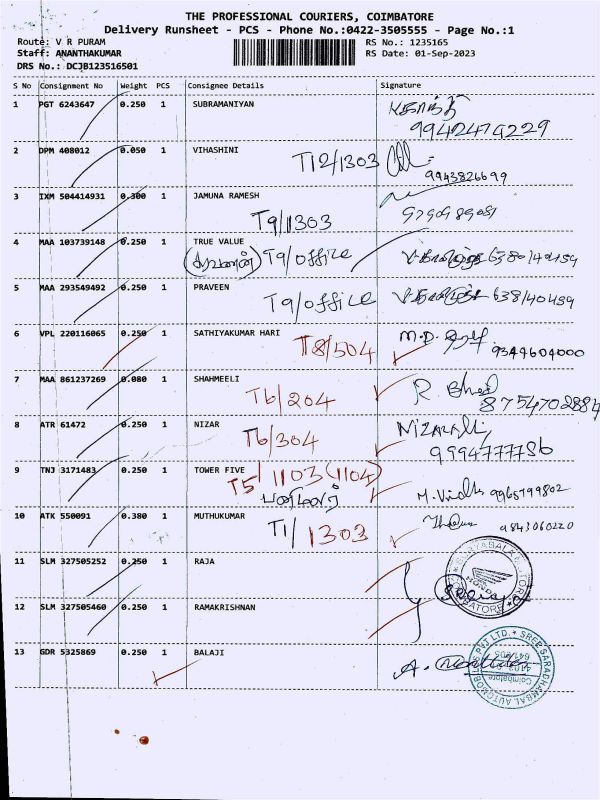 THE PROFESSIONAL COURIERS, COIMBATORE
Delivery Runsheet - PCS - Phone No.:0422-3505555 - Page No.:1
Route: V R PURAM
RS No.: 1235165
Staff: ANANTHAKUMAR
RS Date: 01-Sep-2023
DRS No.: DCJB123516501
S No Consignment No Weight PCS Consignee Details Signature
1 PGT 6243647 0.250 1 SUBRAMANIYAN
9942474229
2 DPM 408012 0.050 1 VIHASHINI
T12/1303
9943826699
3 IXM 504414931 0.300 1 JAMUNA RAMESH
T9/1303
4 MAA 103739148 0.250 1 TRUE VALUE
T9/office
5 MAA 293549492 0.250 1 PRAVEEN
T9/office
6 VPL 220116065 0.250 1 SATHIYAKUMAR HARI
T8/504 M.D.
9344604000
7 MAA 861237269 0.080 1 SHAHMEELI
T6/204 R
8754702884
8 ATR 61472 0.250 1 NIZAR
T6/304
9994777786
9 TNJ 3171483 0.250 1 TOWER FIVE
T5/1103 (1104)
M. 9965799802
10 ATK 550091 0.380 1 MUTHUKUMAR
T1/1303 9843060220
11 SLM 327505252 0.250 1 RAJA
HONDA
COIMBATORE
12 SLM 327505460 0.250 1 RAMAKRISHNAN
13 GDR 5325869 0.250 1 BALAJI
A.
SREE SARADHAMBAL AUTOMOBILES PVT LTD.
Coimbatore